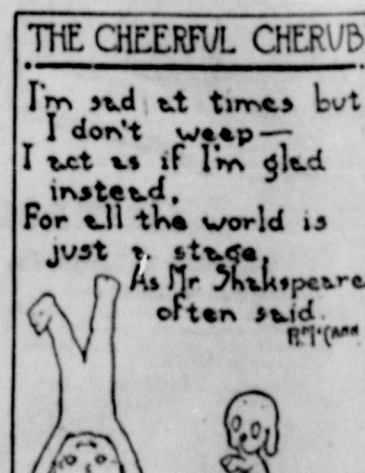 THE CHEERFUL CHERUB
I'm sad at times but
I don't weep—
I act as if I'm glad
instead,
For all the world is
just a stage,
As Mr Shakspeare
often said.
R.McCann